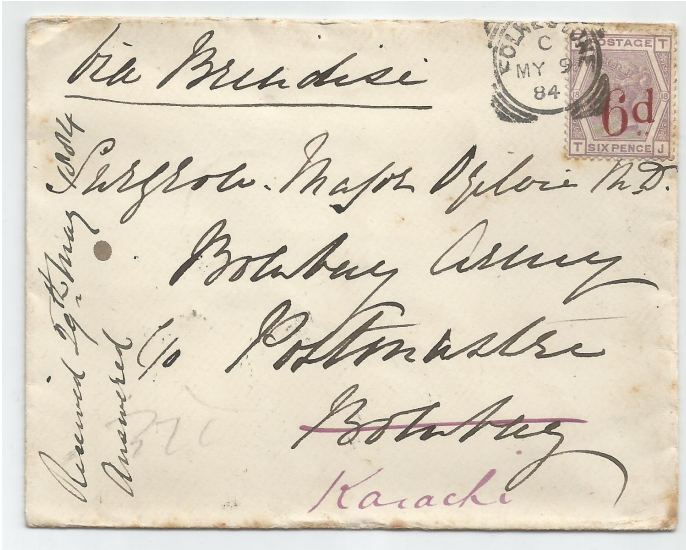 Via Brindisi
FOLKESTONE
C
MY 9
84
POSTAGE
T
6d
T SIX PENCE J
Surgeon. Major Ogilvie M.D.
Bombay Army
c/o Postmaster
Bombay
Karachi
Received 29th May 1884
Answered